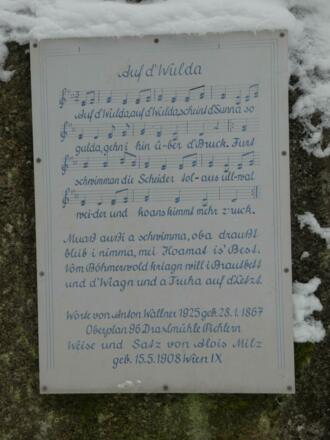 Auf d'Wulda
Auf d'Wulda, auf d'Wulda, scheint d'Sunna so
gulda, geh ni hin ü-ber d'Bruck. Furt
schwimman die Scheider tol-aus ull-wal
wei-der und koans kimmt mehr z'ruck.
Muaß außi a schwimma, oba draußt
bleib i nimma, mei Hoamat is' Best.
Vom Böhmerwold kriagn will i Brautbett
und d'Wiagn und a Truha auf d'Letzt.
Worte von Anton Wallner 1925 geb. 28.1.1867
Oberplan 96 Draxlmühle Pichlern
Weise und Satz von Alois Milz
geb. 15.5.1908 Wien IX